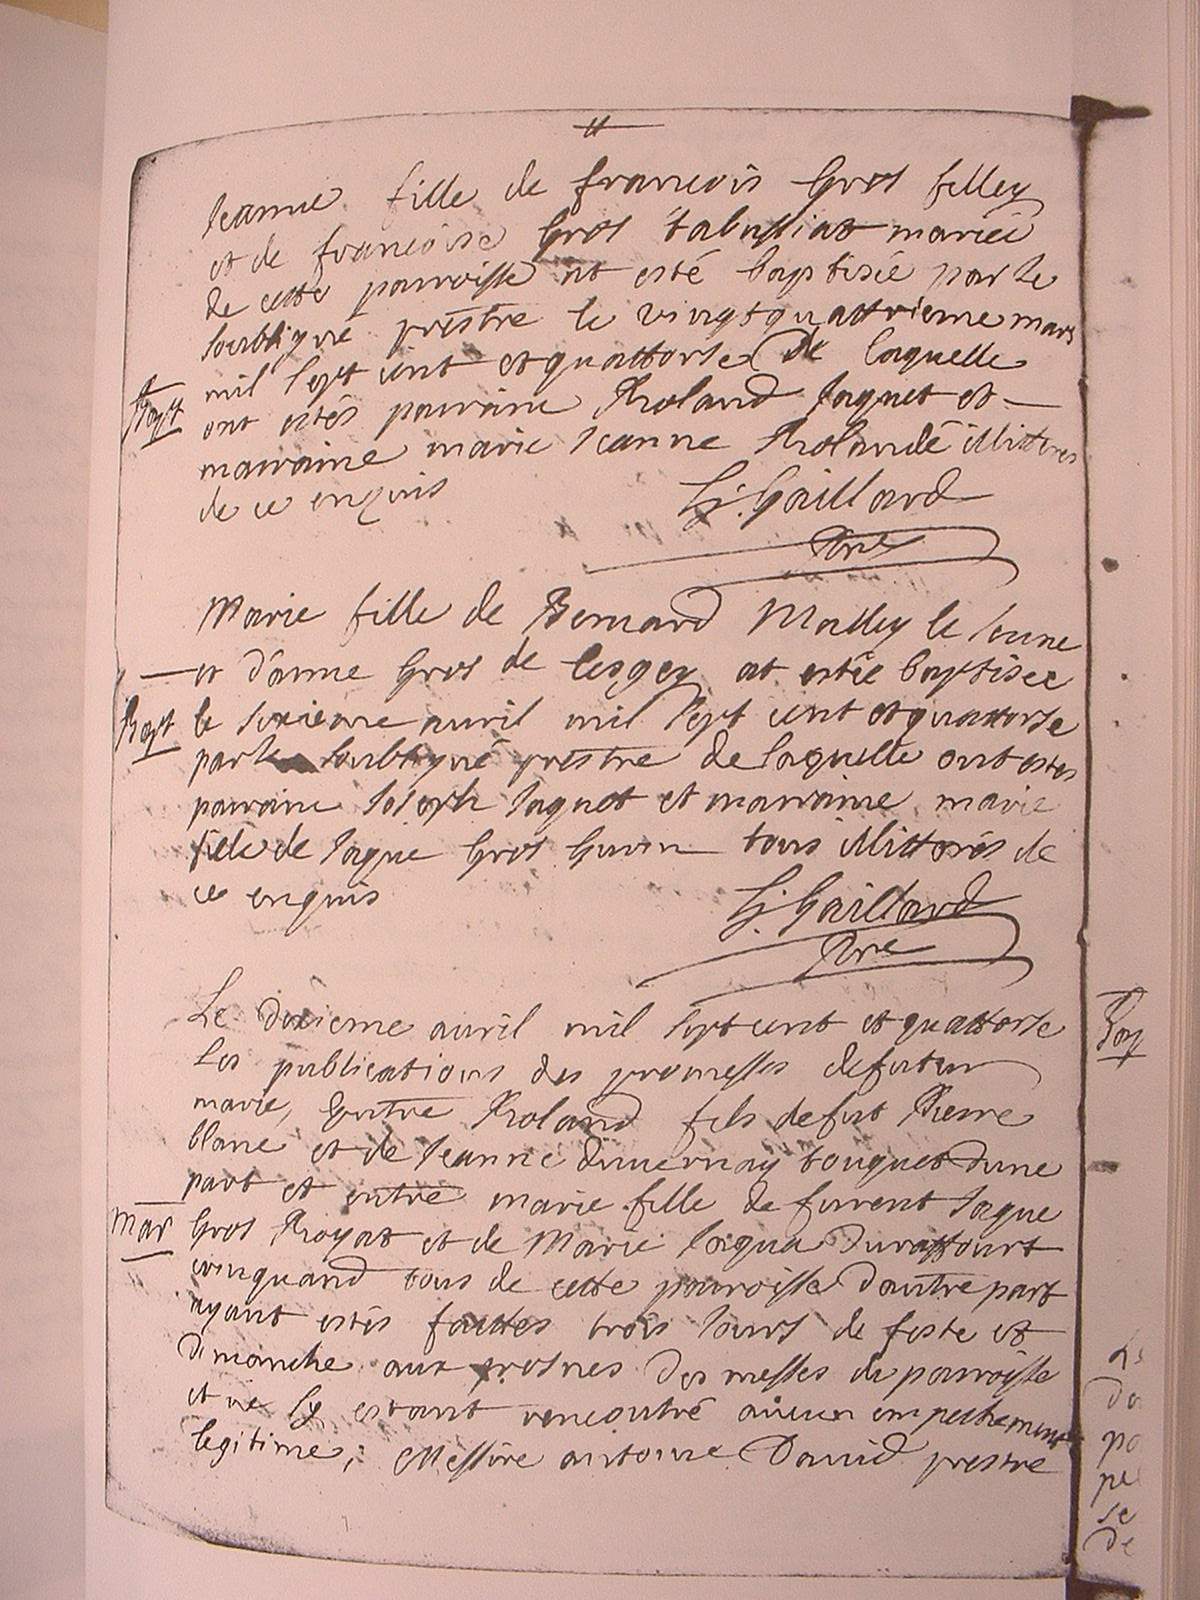 Jeanne fille de francois Gros filley
et de francoise Gros tabussiat mariéé
de cette parroisse at esté baptisée par le
soubsigné prestre le vingtquattrieme mars
Bapt
mil sept cent et quattorse De laquelle
ont estés parraine Rholand Jaquet et
marraine marie Jeanne Rholande illitteres
de ce enquis
Gaillard
Pbre
Marie fille de Bernard Matley le Jeune
et d'anne Gros de Lesgey at estée baptisée
Bapt
le sixieme avril mil sept cent et quattorse
par le soubsigné prestre de laquelle ont estes
parraine Joseph Jaquet et marraine marie
fille de Jaque Gros tous illitterés de
ce enquis
Gaillard
Pbre
Le dixieme avril mil sept cent et quattorse
Les publications des promesses de futur
marie, Entre Rholand fils de fut Pierre
blanc et de Jeanne duvernay touquet dune
part et entre marie fille de furent Jaque
Mar
Gros Royat et de Marie Jaqua Duraffourt
coinquand tous de cette parroisse dautre part
ayant estés faittes trois Jours de feste et
Dimanche aux prosnes des messes de parroisse
et ne sy estant rencontré aucun empechement
legitime; Messire antoine David prestre
Bap